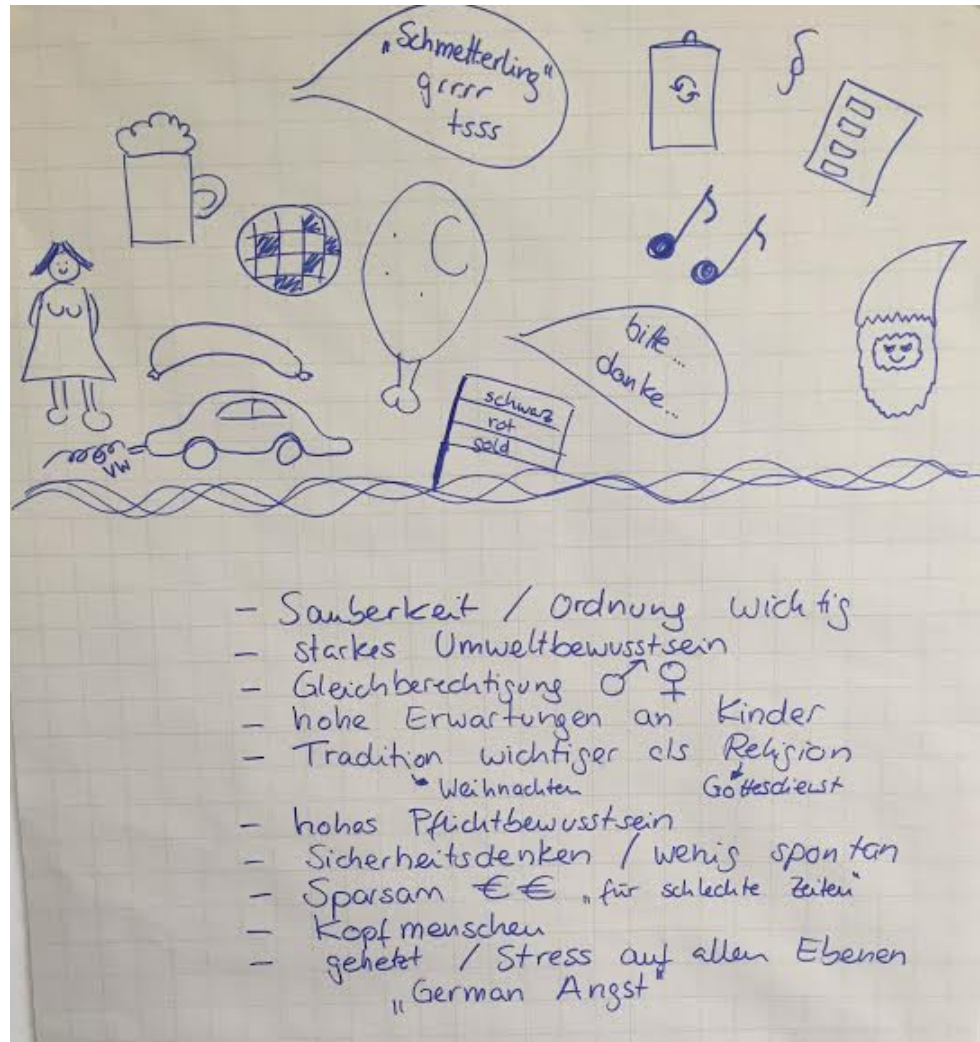 „Schmetterling“
grrrr
tsss
§
bitte...
danke...
schwarz
rot
gold
VW
- Sauberkeit / Ordnung wichtig
- starkes Umweltbewusstsein
- Gleichberechtigung ♂ ♀
- hohe Erwartungen an Kinder
- Tradition wichtiger als Religion
Weihnachten Gottesdienst
- hohes Pflichtbewusstsein
- Sicherheitsdenken / wenig spontan
- Sparsam €€ „für schlechte Zeiten“
- Kopfmenschen
- gehetzt / Stress auf allen Ebenen
„German Angst“